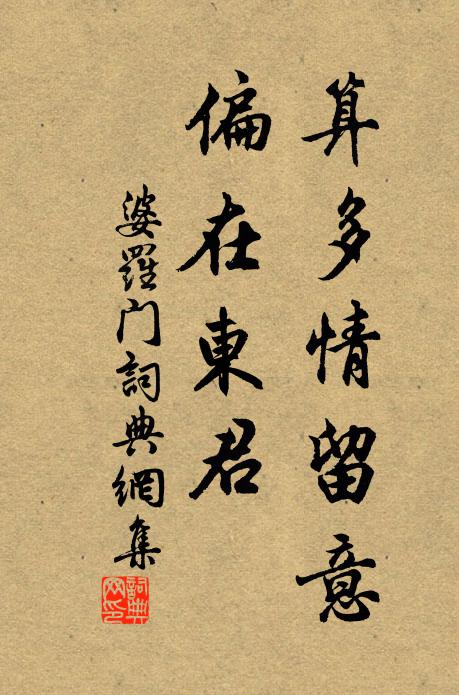 算多情留意
偏在東君
婆羅门詞典網集
詞典
网印